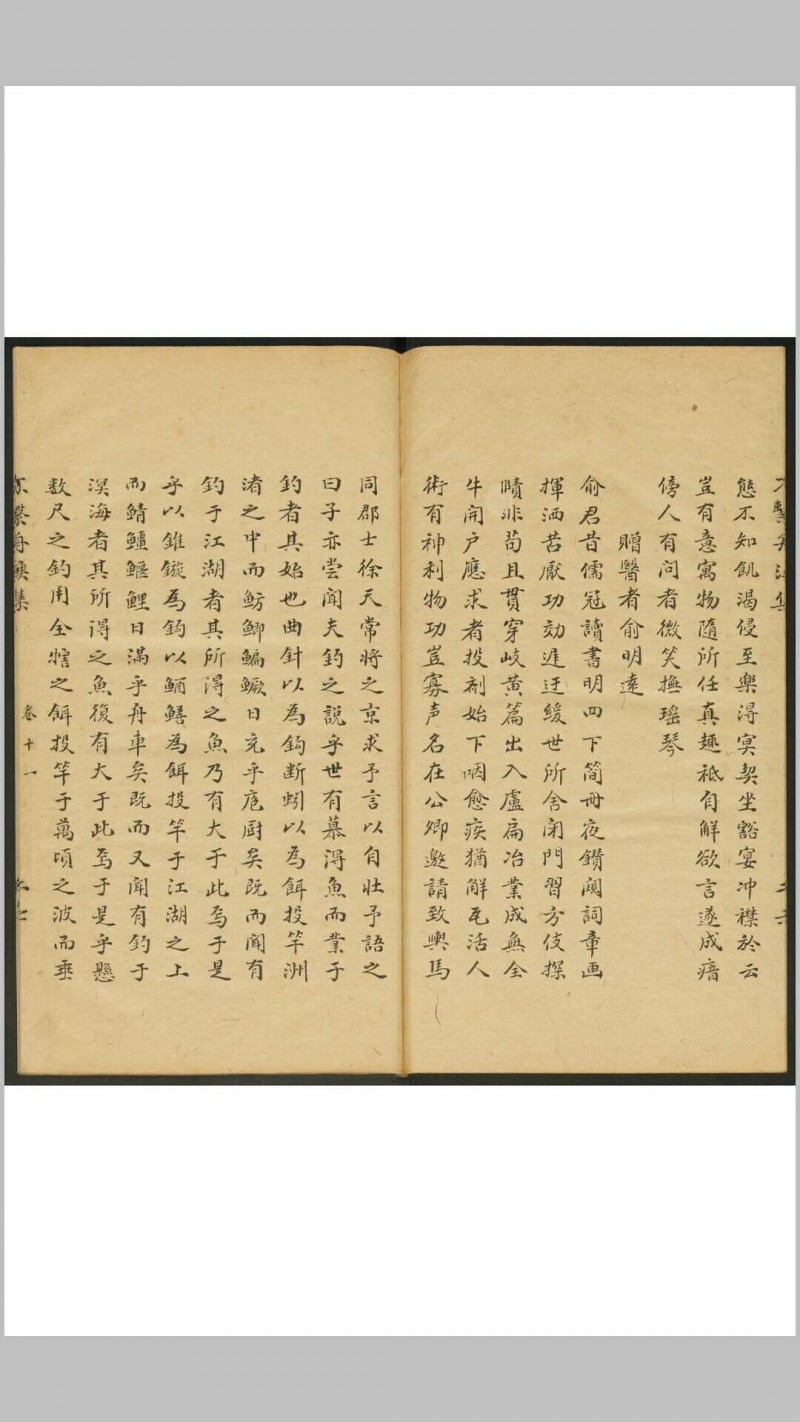 態不知飢渴侵至樂淂㝠契坐豁宴冲襟於云
豈有意寓物隨所任真趣祗自觧欲言遂成瘖
傍人有问者微笑撫瑶琴
贈醫者俞明遠
俞君昔儒冠讀書明四下简冊夜鑚阅詞章画
揮洒苦厭功効進迂緩世所舍闭門習方伎探
賾非苟且貫穿岐黄篇出入盧扁冶業成無全
牛開户應求者投剤始下咽愈疾猶觧瓦活人
術有神利物功豈寡声名在公卿邀請致輿馬
同郡士徐天常將之京求予言以自壯予語之
曰子亦尝聞夫釣之說乎世有慕淂魚而業于
釣者其始也曲針以為鈎断蚓以為餌投竿洲
渚之中而魴鲫鯿鱖日充乎庖厨矣既而聞有
釣于江湖者其所得之魚乃有大于此焉于是
乎以錐鏇為鈎以鰌鱔為餌投竿于江湖之上
而鲭鱷鰋鯉日滿乎舟車矣既而又聞有釣于
溟海者其所得之魚復有大于此焉于是乎懸
数尺之鈎用全犗之餌投竿于萬頃之波而垂
不繫舟漁集
卷十一